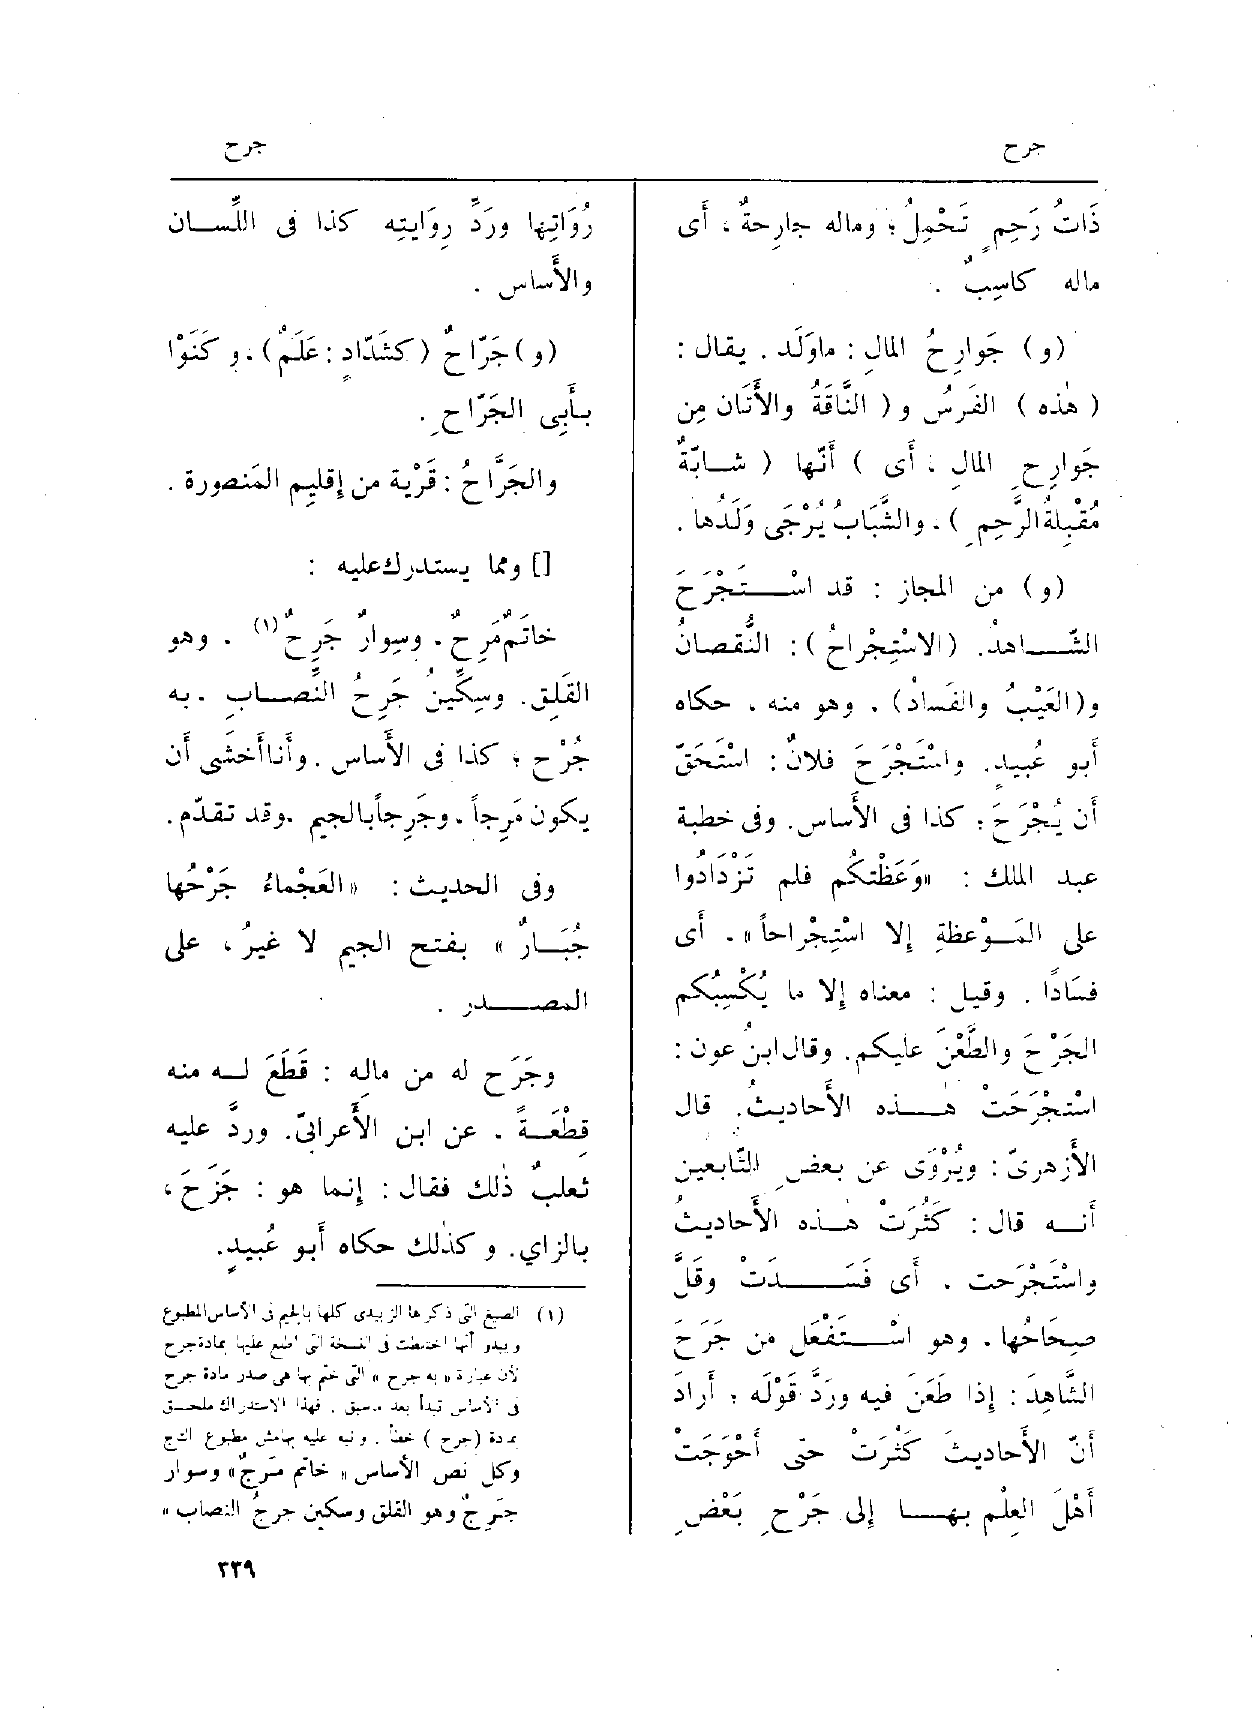 جرح
جرح
ذَاتُ رَحِمٍ تَحْمِلُ، وماله جارِحةٌ، أَى
ماله كاسِبٌ .
(و) جَوارِحُ المالِ : ماوَلَد . يقال :
( هٰذه ) الفَرَسُ و ( النَّاقَةُ والأَتَان مِن
جَوارِحِ المالِ ، أَى ) أَنّها ( شابَّةٌ
مُقْبِلةُ الرَّحِمِ ) . والشَّبَابُ يُرْجَى وَلَدُها .
(و) من المجاز : قد اسْتَجْرَحَ
الشّاهدُ. (الاسْتِجْراحُ) : النُّقصانُ
و(العَيْبُ والفَسادُ) . وهو منه ، حكاه
أَبو عُبيدٍ. واسْتَجْرَحَ فلانٌ : اسْتَحَقّ
أَن يُجْرَحَ ؛ كذا فى الأَساس. وفى خطبة
عبد الملك : «وَعَظْتكُم فلم تَزْدَادُوا
على المَوْعظةِ إلا اسْتِجْراحاً» . أَى
فسَادًا . وقيل : معناه إلا ما يُكْسِبُكم
الجَرْحَ والطَّعْنَ عليكم. وقال ابنُ عون :
اسْتجْرَحَتْ هٰذه الأَحاديثُ. قال
الأَزهرىّ : ويُرْوَى عن بعض التّابعين
أَنه قال : كَثُرَتْ هٰذه الأَحاديثُ
واسْتَجْرَحت . أَى فَسَدَتْ وقَلَّ
صِحَاحُها . وهو اسْتَفْعَل من جَرَحَ
الشَّاهِدَ : إذا طَعَنَ فيه ورَدَّ قوْلَه ؛ أَرادَ
أَنّ الأَحاديثَ كَثُرَتْ حتى أَحْوَجَتْ
أَهْلَ العِلْمِ بها إلى جَرْحِ بَعْضِ
رُوَاتِها ورَدِّ رِوَايتِه كذا فى اللِّسان
والأَساس .
(و) جَرّاحٌ (كشَدّادٍ : عَلَمٌ) . و كَنَوْا
بأَبِى الجَرّاحِ .
والجَرَّاحُ : قَرْية من إِقليم المَنصورة .
[] ومما يستدرك عليه :
خاتَمٌ مَرِحٌ . وسِوارٌ جَرِحٌ (١) . وهو
القَلِق. وسِكِّينٌ جَرِحُ النِّصابِ . به
جُرْح ؛ كذا فى الأَساس . وأَنا أَخشى أَن
يكون مَرِجاً . وجَرِجاً بالجيم . وقد تقدّم .
وفى الحديث : «العَجْماءُ جَرْحُها
جُبَارٌ » بفتح الجيم لا غيرُ ، على
المصدر .
وجَرَح له من مالِه : قَطَعَ له منه
قِطْعَةً . عن ابن الأَعرابىّ. وردَّ عليه
ثعلبٌ ذٰلك فقال : إِنما هو : جَزَحَ ،
بالزاي. و كذٰلك حكاه أَبو عُبيدٍ.
(١) الصيغ التى ذكرها الزبيدى كلها بالجيم فى الأساس المطبوع
ويبدو أنها اختلطت فى النسخة التى اطلع عليها بمادة جرح
لأن عبارة « به جرح » التى ختم بها هى صدر مادة جرح
فى الأساس تبدأ بعد ماسبق . فهذا الاستدراك ملحق
بمادة (جرح) خطأ . ونبه عليه بهامش مطبوع التاج
وكل نص الأساس « خاتم مَرِجٌ» وسوار
جَرِجٌ وهو القلق وسكين جرجُ النصاب »
٣٣٩